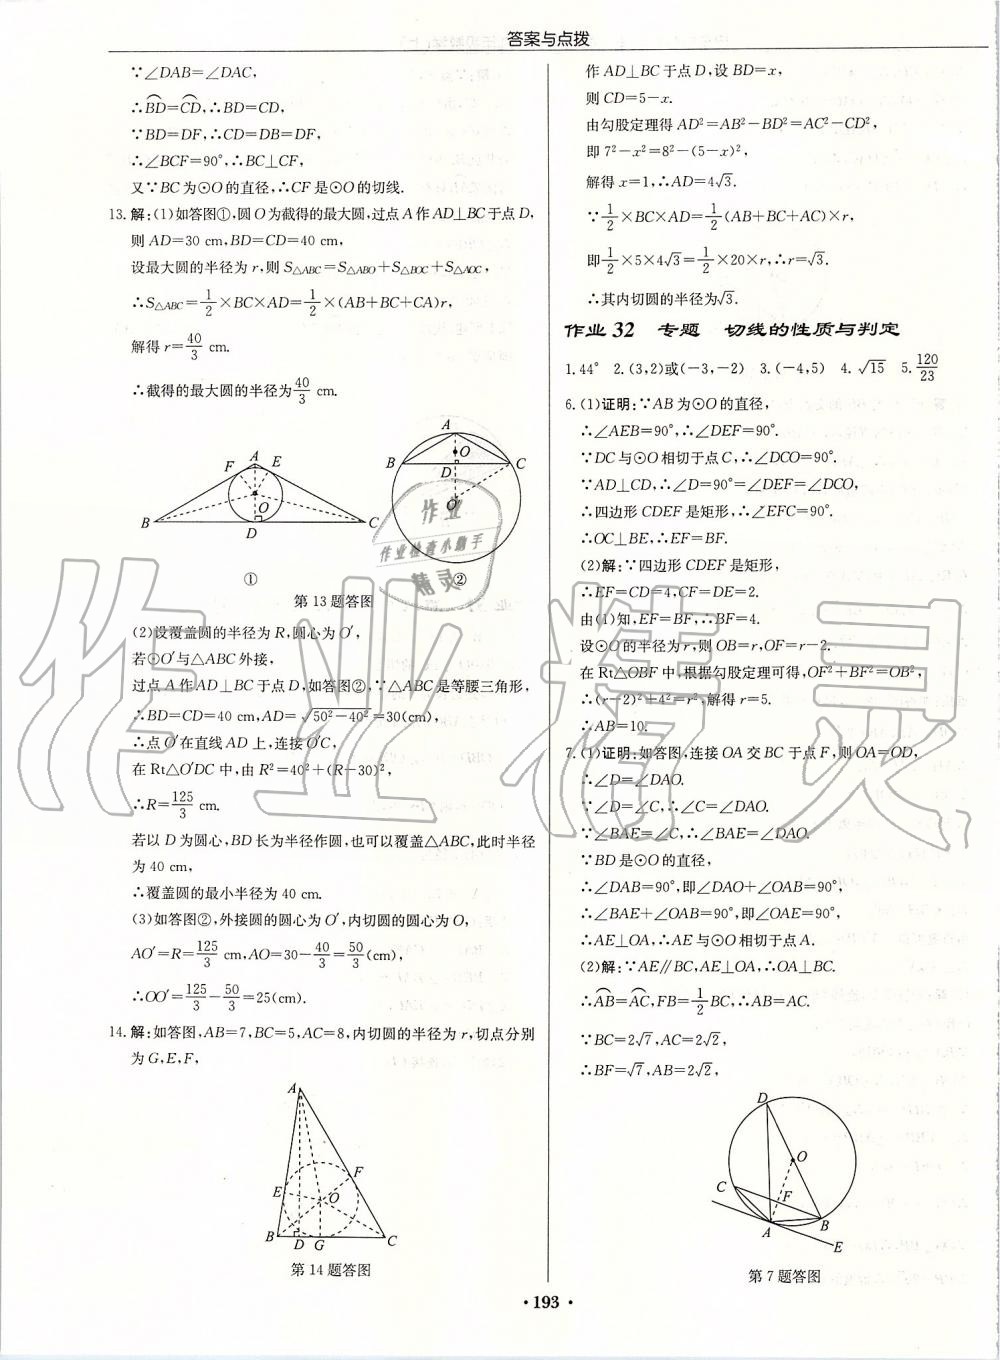 答案与点拨
∵∠DAB=∠DAC,
∴BD=CD,∴BD=CD,
∵BD=DF,∴CD=DB=DF,
∴∠BCF=90°,∴BC⊥CF,
又∵BC为⊙O的直径,∴CF是⊙O的切线.
13.解:(1)如答图①,圆O为截得的最大圆,过点A作AD⊥BC于点D,
则AD=30 cm,BD=CD=40 cm,
设最大圆的半径为r,则S△ABC=S△ABO+S△BOC+S△AOC,
∴S△ABC=1/2×BC×AD=1/2×(AB+BC+CA)r,
解得r=40/3 cm.
∴截得的最大圆的半径为40/3 cm.
A
F
E
O
B
D
C
①
A
O
B
D
C
O′
②
第13题答图
(2)设覆盖圆的半径为R,圆心为O′,
若⊙O′与△ABC外接,
过点A作AD⊥BC于点D,如答图②,∵△ABC是等腰三角形,
∴BD=CD=40 cm,AD=√(50²-40²)=30(cm),
∴点O′在直线AD上,连接O′C,
在Rt△O′DC中,由R²=40²+(R-30)²,
∴R=125/3 cm.
若以D为圆心,BD长为半径作圆,也可以覆盖△ABC,此时半径
为40 cm,
∴覆盖圆的最小半径为40 cm.
(3)如答图②,外接圆的圆心为O′,内切圆的圆心为O,
AO′=R=125/3 cm,AO=30-40/3=50/3(cm),
∴OO′=125/3-50/3=25(cm).
14.解:如答图,AB=7,BC=5,AC=8,内切圆的半径为r,切点分别
为G,E,F,
A
F
E
O
B
D
G
C
第14题答图
作AD⊥BC于点D,设BD=x,
则CD=5-x.
由勾股定理得AD²=AB²-BD²=AC²-CD²,
即7²-x²=8²-(5-x)²,
解得x=1,∴AD=4√3.
∵1/2×BC×AD=1/2(AB+BC+AC)×r,
即1/2×5×4√3=1/2×20×r,∴r=√3.
∴其内切圆的半径为√3.
作业32 专题 切线的性质与判定
1.44° 2.(3,2)或(-3,-2) 3.(-4,5) 4.√15 5.120/23
6.(1)证明:∵AB为⊙O的直径,
∴∠AEB=90°,∴∠DEF=90°.
∵DC与⊙O相切于点C,∴∠DCO=90°.
∵AD⊥CD,∴∠D=90°=∠DEF=∠DCO,
∴四边形CDEF是矩形,∴∠EFC=90°.
∴OC⊥BE,∴EF=BF.
(2)解:∵四边形CDEF是矩形,
∴EF=CD=4,CF=DE=2.
由(1)知,EF=BF,∴BF=4.
设⊙O的半径为r,则OB=r,OF=r-2.
在Rt△OBF中,根据勾股定理可得,OF²+BF²=OB²
∴(r-2)²+4²=r²,解得r=5.
∴AB=10.
7.(1)证明:如答图,连接OA交BC于点F,则OA=OD,
∴∠D=∠DAO.
∵∠D=∠C,∴∠C=∠DAO.
∵∠BAE=∠C,∴∠BAE=∠DAO.
∵BD是⊙O的直径,
∴∠DAB=90°,即∠DAO+∠OAB=90°,
∴∠BAE+∠OAB=90°,即∠OAE=90°,
∴AE⊥OA,∴AE与⊙O相切于点A.
(2)解:∵AE∥BC,AE⊥OA,∴OA⊥BC.
∴AB=AC,FB=1/2BC,∴AB=AC.
∵BC=2√7,AC=2√2,
∴BF=√7,AB=2√2,
D
O
C
F
A
B
E
第7题答图
· 193 ·
作业
作业检查小助手
精灵
作业精灵